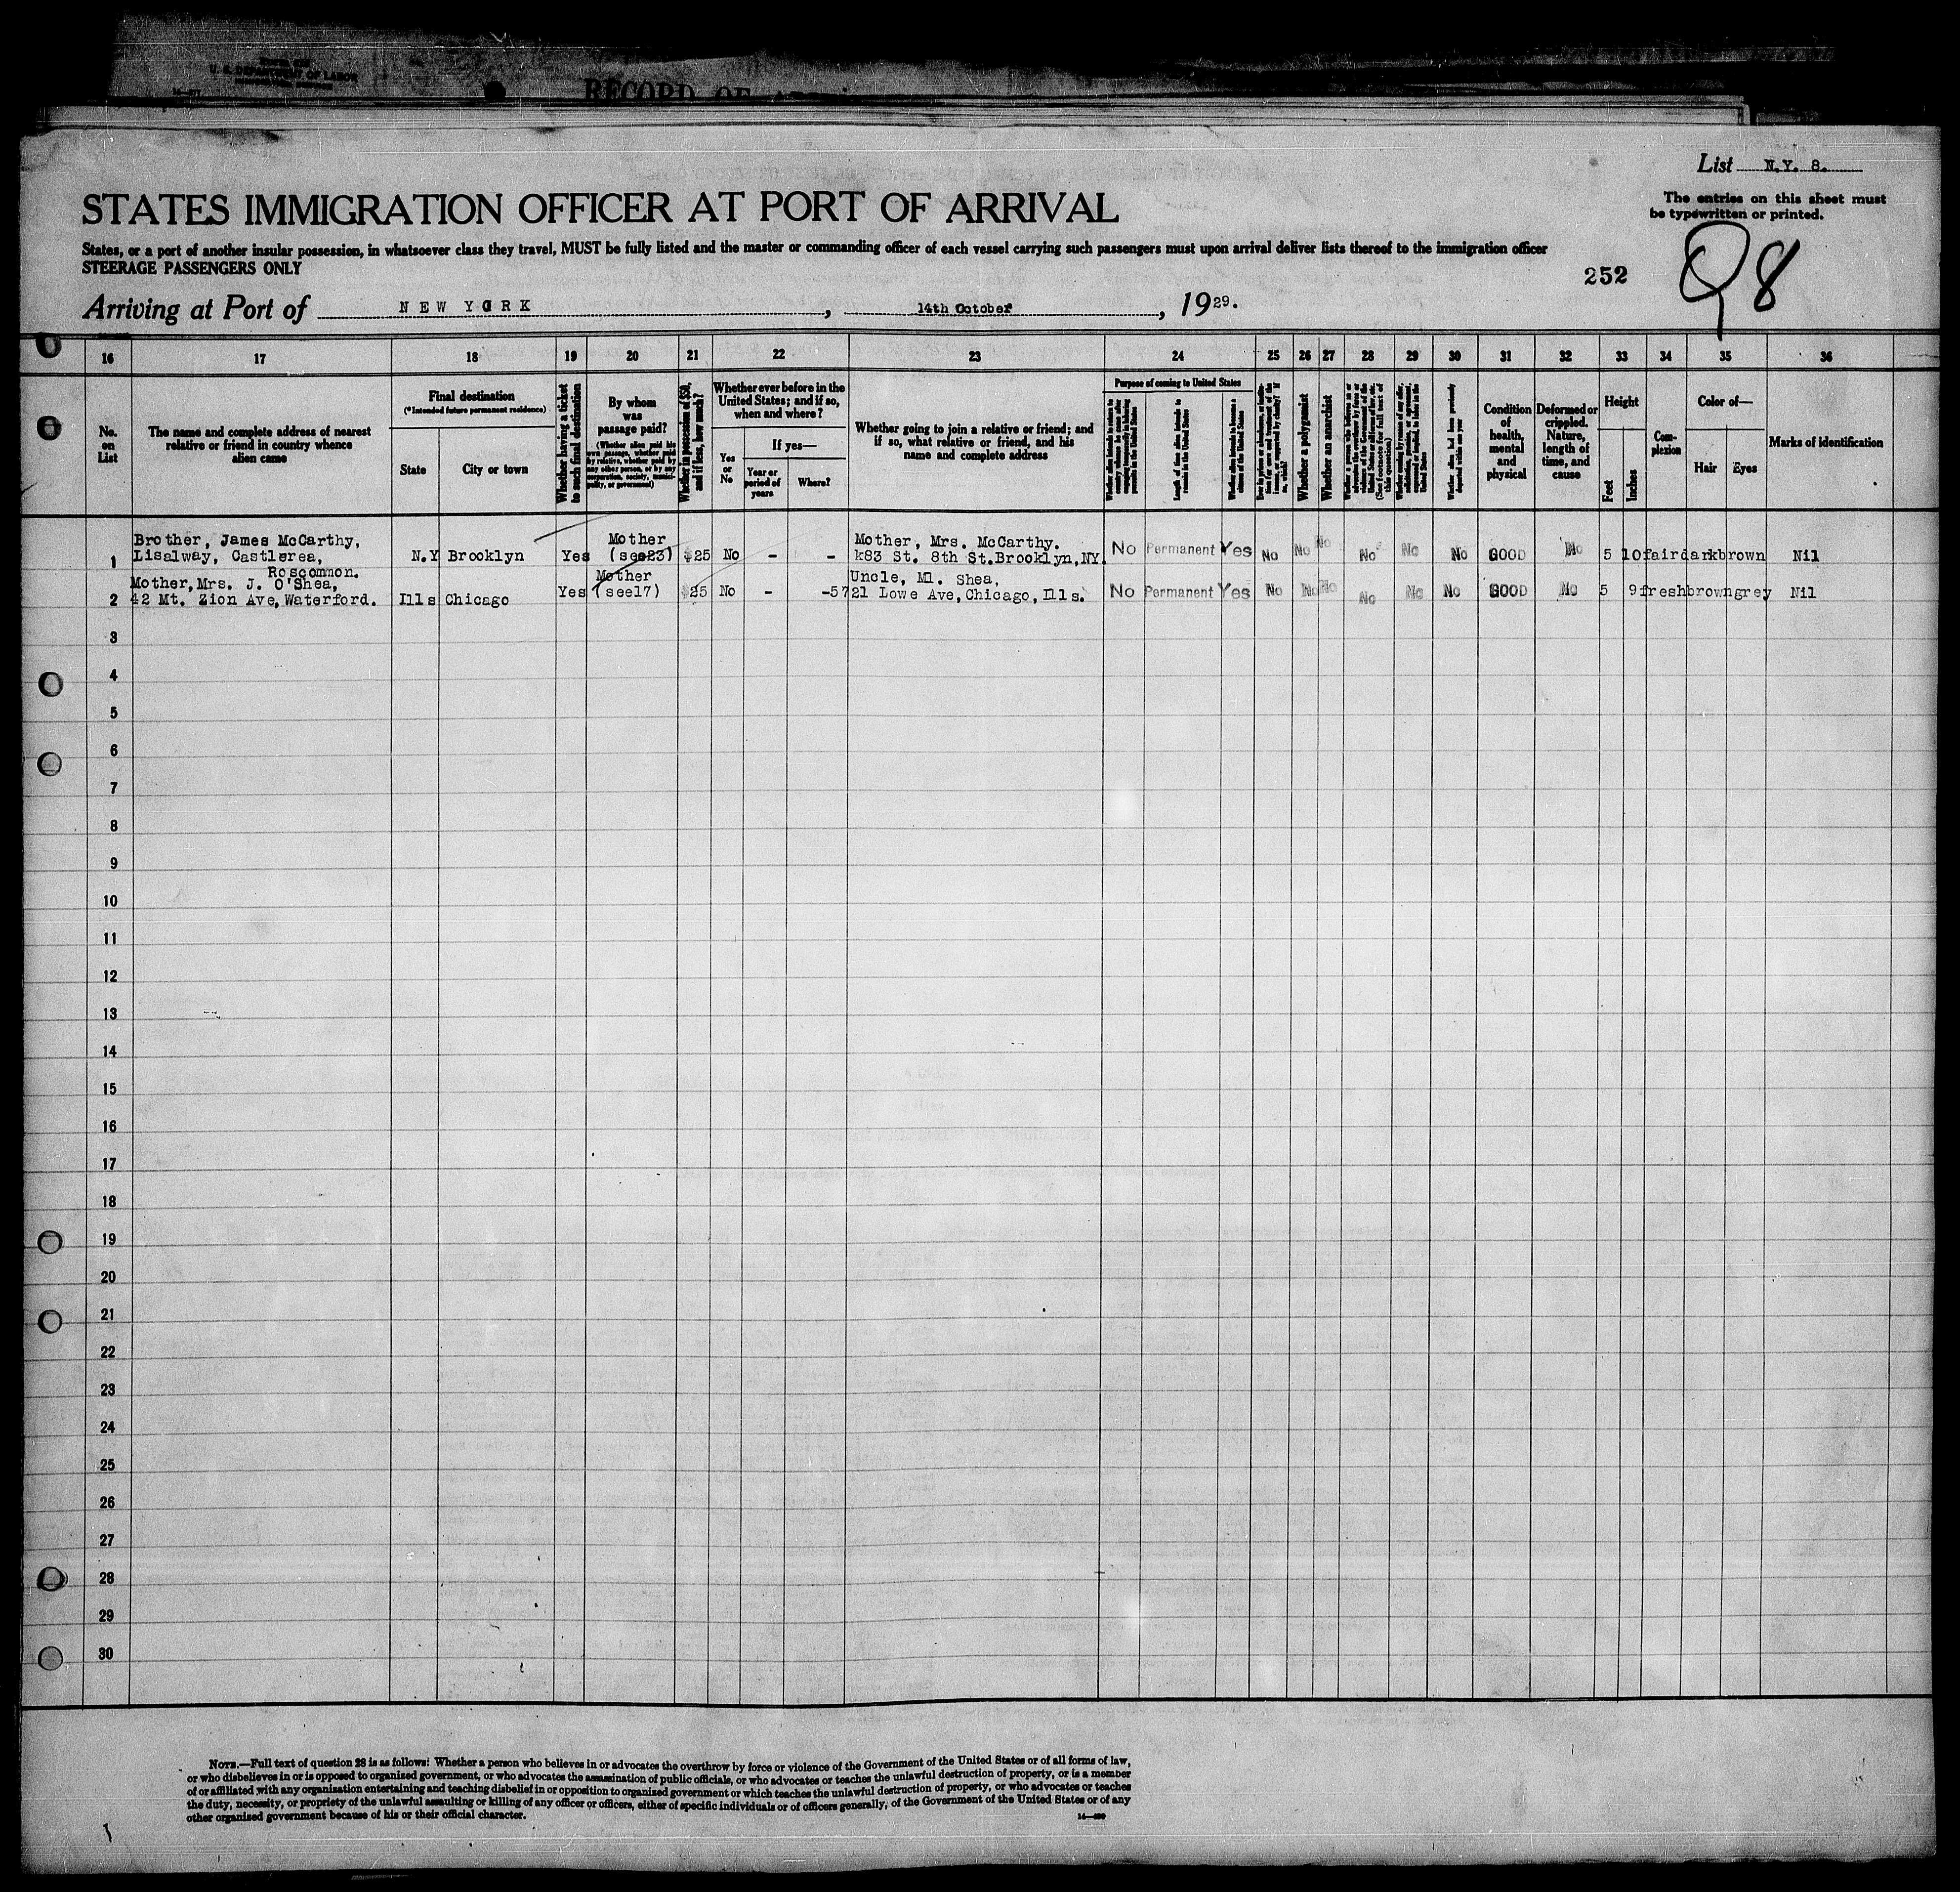 U. S. DEPARTMENT OF LABOR
RECORD OF
List N.Y. 8.
The entries on this sheet must
be typewritten or printed.
STATES IMMIGRATION OFFICER AT PORT OF ARRIVAL
States, or a port of another insular possession, in whatsoever class they travel, MUST be fully listed and the master or commanding officer of each vessel carrying such passengers must upon arrival deliver lists thereof to the immigration officer
STEERAGE PASSENGERS ONLY
252
98
Arriving at Port of NEW YORK, 14th October, 1929.
16 17 18 19 20 21 22 23 24 25 26 27 28 29 30 31 32 33 34 35 36
No. on List
The name and complete address of nearest
relative or friend in country whence
alien came
Final destination
(*Intended future permanent residence)
State
City or town
Whether having a ticket
to such final destination
By whom
was
passage paid?
(Whether alien paid his
own passage, whether paid
by relative, whether paid by
any other person, or by any
corporation, society, munici-
pality, or government)
Whether in possession of $50,
and if less, how much?
Whether ever before in the
United States; and if so,
when and where?
Yes
or
No
If yes—
Year or
period of
years
Where?
Whether going to join a relative or friend; and
if so, what relative or friend, and his
name and complete address
Purpose of coming to United States
Length of time alien intends to
remain in the United States
Whether alien intends to become a
citizen of the United States
Whether a polygamist
Whether an anarchist
Whether alien had been previously
deported within one year
Condition
of
health,
mental
and
physical
Deformed or
crippled.
Nature,
length of
time, and
cause
Height
Feet
Inches
Com-
plexion
Color of—
Hair
Eyes
Marks of identification
Brother, James McCarthy,
1 Lisalway, Castlerea, N.Y Brooklyn Yes Mother (see23) $25 No - - Mother, Mrs. McCarthy. k83 St. 8th St.Brooklyn,NY. No Permanent Yes No No No No No No GOOD No 5 10 fair dark brown Nil
Roscommon.
Mother,Mrs. J. O'Shea,
2 42 Mt. Zion Ave,Waterford. Ills Chicago Yes Mother (see17) $25 No - - Uncle, Ml. Shea, 5721 Lowe Ave,Chicago,Ills. No Permanent Yes No No No No No No GOOD No 5 9 fresh brown grey Nil
3
4
5
6
7
8
9
10
11
12
13
14
15
16
17
18
19
20
21
22
23
24
25
26
27
28
29
30
NOTE.—Full text of question 28 is as follows: Whether a person who believes in or advocates the overthrow by force or violence of the Government of the United States or of all forms of law,
or who disbelieves in or is opposed to organized government, or who advocates the assassination of public officials, or who advocates or teaches the unlawful destruction of property, or is a member
of or affiliated with any organization entertaining and teaching disbelief in or opposition to organized government or which teaches the unlawful destruction of property, or who advocates or teaches
the duty, necessity, or propriety of the unlawful assaulting or killing of any officer or officers, either of specific individuals or of officers generally, of the Government of the United States or of any
other organized government because of his or their official character.